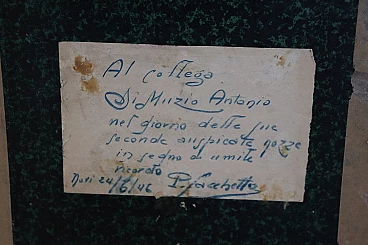 Al collega
Di Muzio Antonio
nel giorno delle sue
seconde auspicate nozze
in segno di umile
ricordo P. Sacchetto
24/6/46